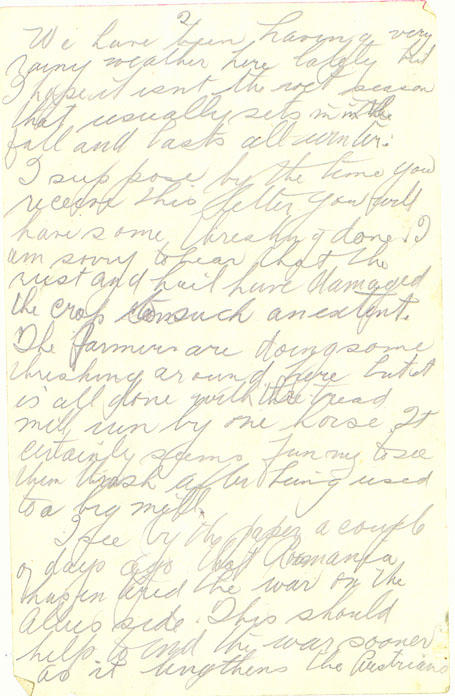 2
We have been having very
rainy weather here lately but
I hope it isnt the wet season
that usually sets in in the
fall and lasts all winter.
I suppose by the time you
receive this letter you will
have some threshing done. I
am sorry to hear that the
rust and hail have damaged
the crop to such an extent.
The farmers are doing some
threshing around here but it
is all done with the tread
mill run by one horse. It
certainly seems funny to see
them thrash after being used
to a big mill.
I see by the paper a couple
of days ago that Romania
has entered the war on the
Allies side. This should
help to end the war sooner
as it lengthens the Austrians